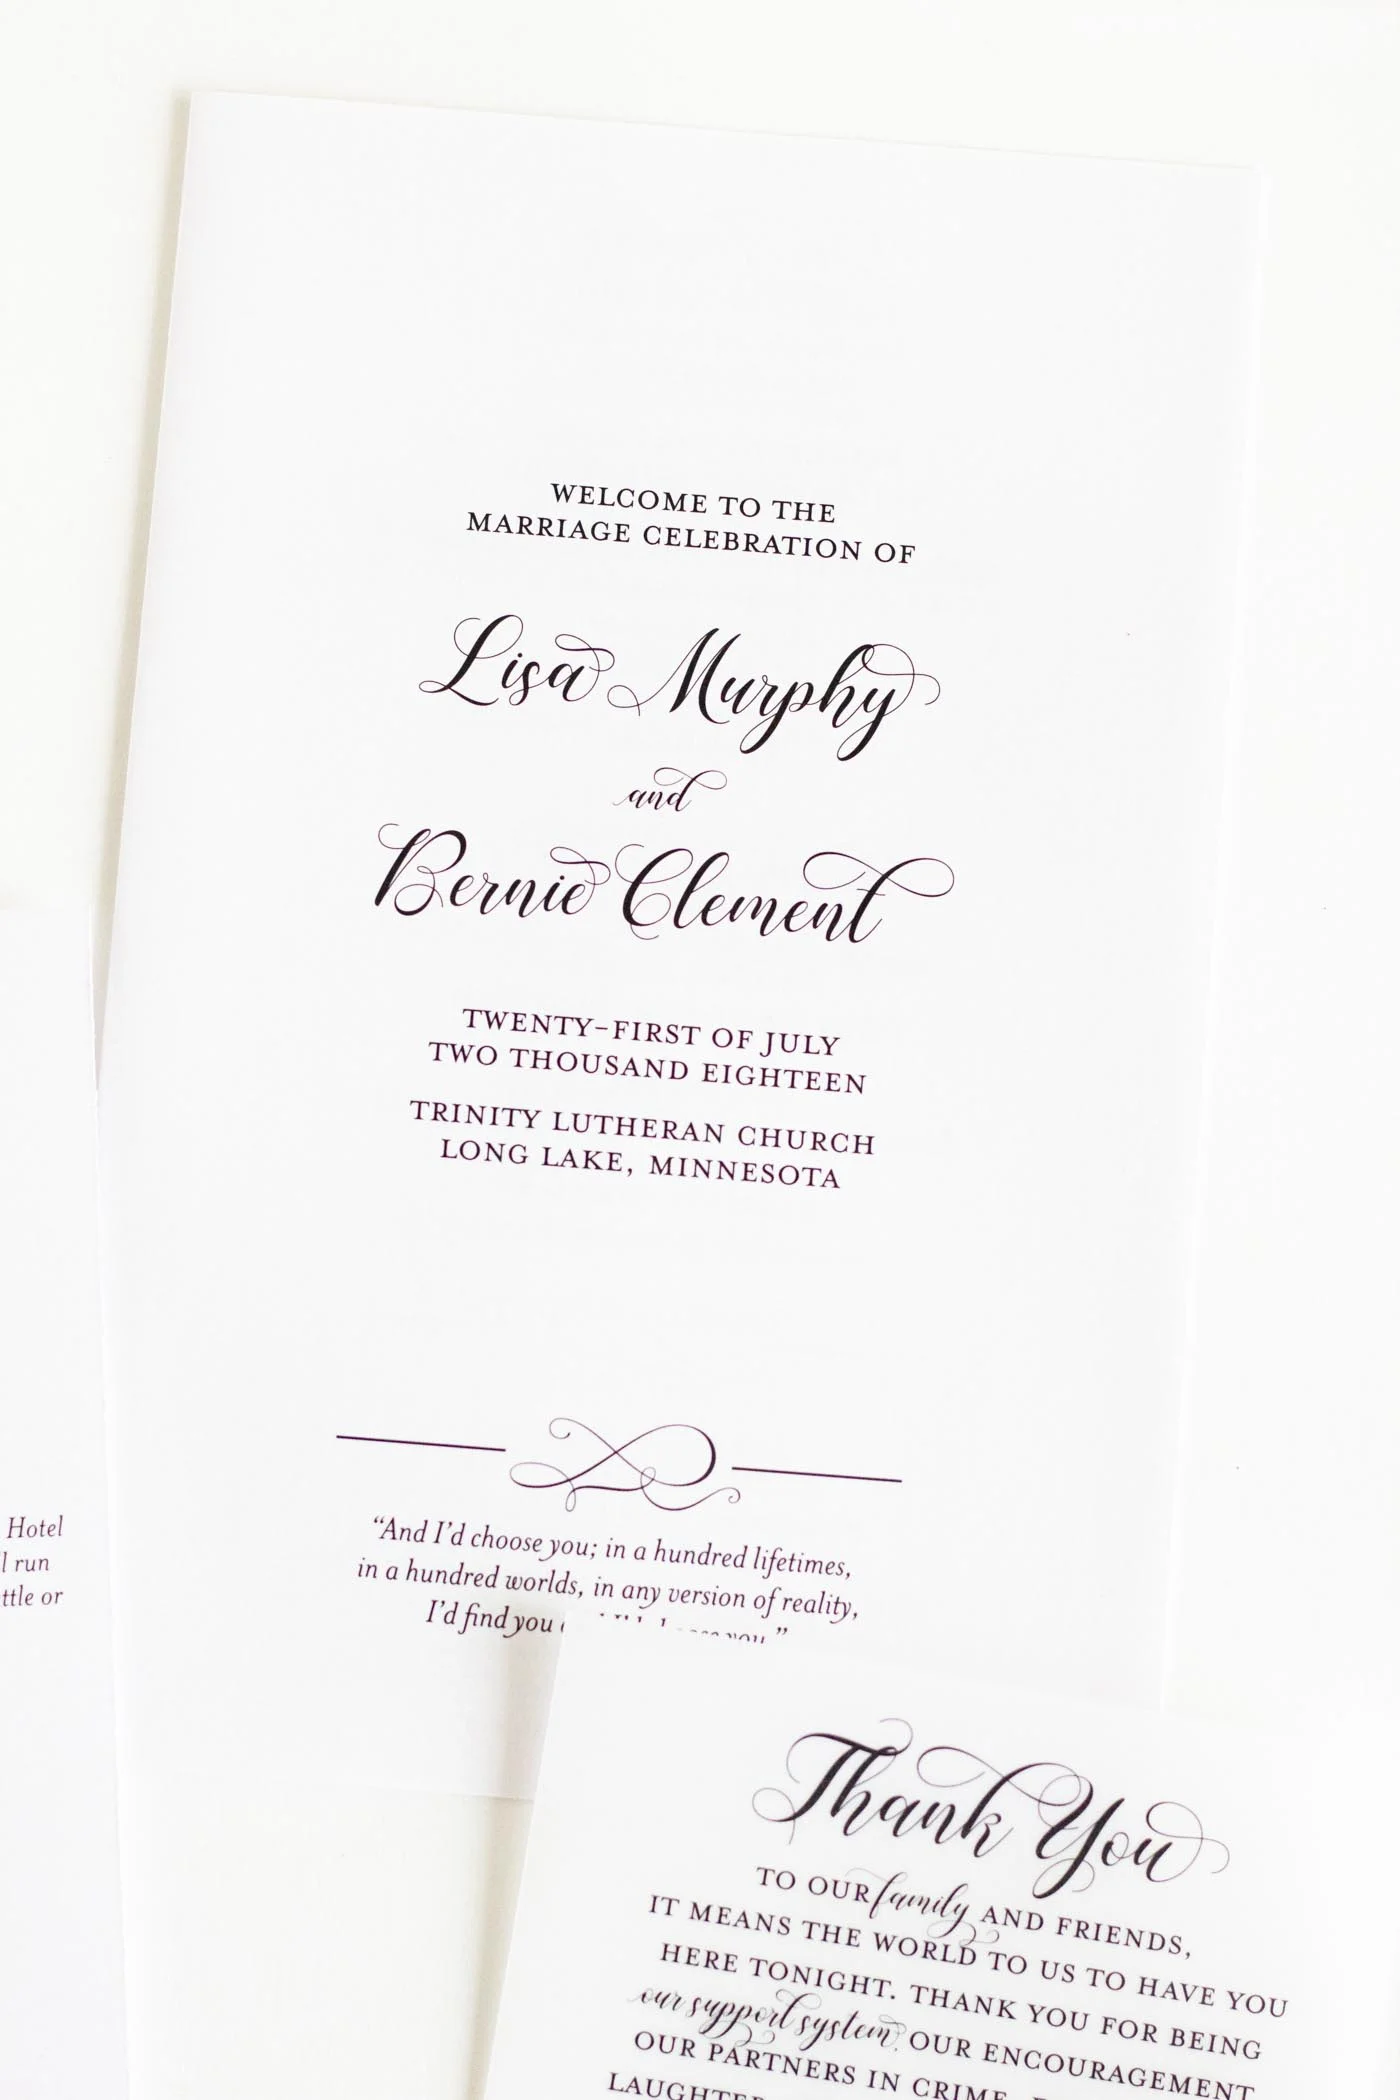 WELCOME TO THE
MARRIAGE CELEBRATION OF
Lisa Murphy
and
Bernie Clement
TWENTY-FIRST OF JULY
TWO THOUSAND EIGHTEEN
TRINITY LUTHERAN CHURCH
LONG LAKE, MINNESOTA
“And I’d choose you; in a hundred lifetimes,
in a hundred worlds, in any version of reality,
I’d find you you.”
Hotel
run
or
Thank You
TO OUR family AND FRIENDS,
IT MEANS THE WORLD TO US TO HAVE YOU
HERE TONIGHT. THANK YOU FOR BEING
our support system, OUR ENCOURAGEMENT
OUR PARTNERS IN CRIME,
LAUGHTER